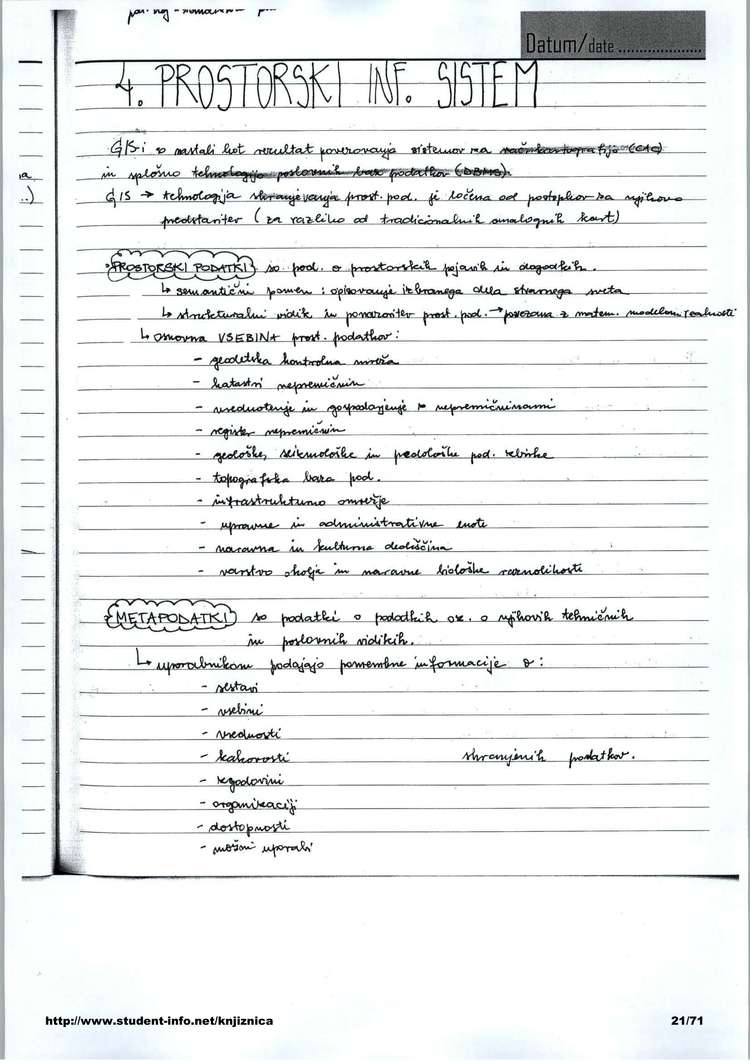 Datum/date ....................
4. PROSTORSKI INF. SISTEM
GIS-i so nastali kot rezultat povezovanja sistemov za računalniško kartografijo (CAC)
in splošno tehnologijo poslovnih baz podatkov (DBMS).
GIS → tehnologija shranjevanja prost. pod. je ločena od postopkov za njihovo
predstavitev (za razliko od tradicionalnih analognih kart)
PROSTORSKI PODATKI so pod. o prostorskih pojavih in dogodkih.
↳ semantični pomen : opisovanje izbranega dela stvarnega sveta
↳ strukturalni vidik in ponazoritev prost. pod. → povezana z matem. modelom realnosti
↳ osnovna VSEBINA prost. podatkov :
- geodetska kontrolna mreža
- katastri nepremičnin
- vrednotenje in gospodarjenje z nepremičninami
- register nepremičnin
- geološke, seizmološke in pedološke pod. zbirke
- topografska baza pod.
- infrastrukturno omrežje
- upravne in administrativne enote
- naravna in kulturna dediščina
- varstvo okolja in naravne biološke raznolikosti
METAPODATKI so podatki o podatkih oz. o njihovih tehničnih
in poslovnih vidikih.
↳ uporabnikom podajajo pomembne informacije o :
- sestavi
- vsebini
- vrednosti
- kakovosti shranjenih podatkov.
- zgodovini
- organizaciji
- dostopnosti
- možni uporabi
http://www.student-info.net/knjiznica
21/71